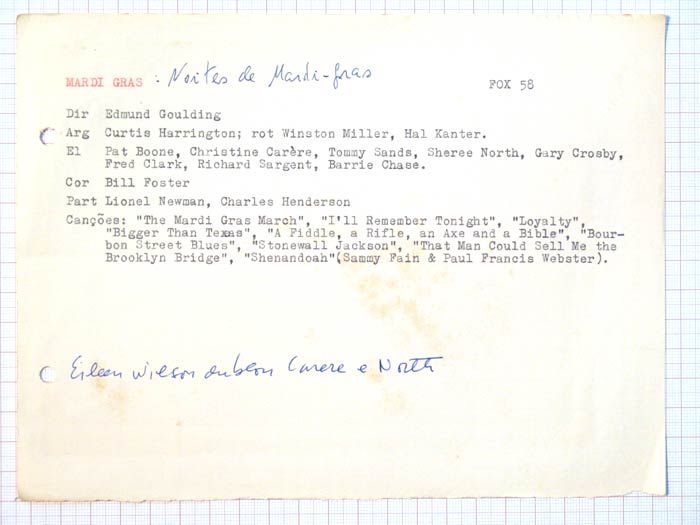 MARDI GRAS : Noites de Mardi-gras FOX 58
Dir Edmund Goulding
Arg Curtis Harrington; rot Winston Miller, Hal Kanter.
El Pat Boone, Christine Carère, Tommy Sands, Sheree North, Gary Crosby,
Fred Clark, Richard Sargent, Barrie Chase.
Cor Bill Foster
Part Lionel Newman, Charles Henderson
Canções: "The Mardi Gras March", "I'll Remember Tonight", "Loyalty",
"Bigger Than Texas", "A Fiddle, a Rifle, an Axe and a Bible", "Bour-
bon Street Blues", "Stonewall Jackson", "That Man Could Sell Me the
Brooklyn Bridge", "Shenandoah"(Sammy Fain & Paul Francis Webster).
Eileen Wilson dublou Carere e North